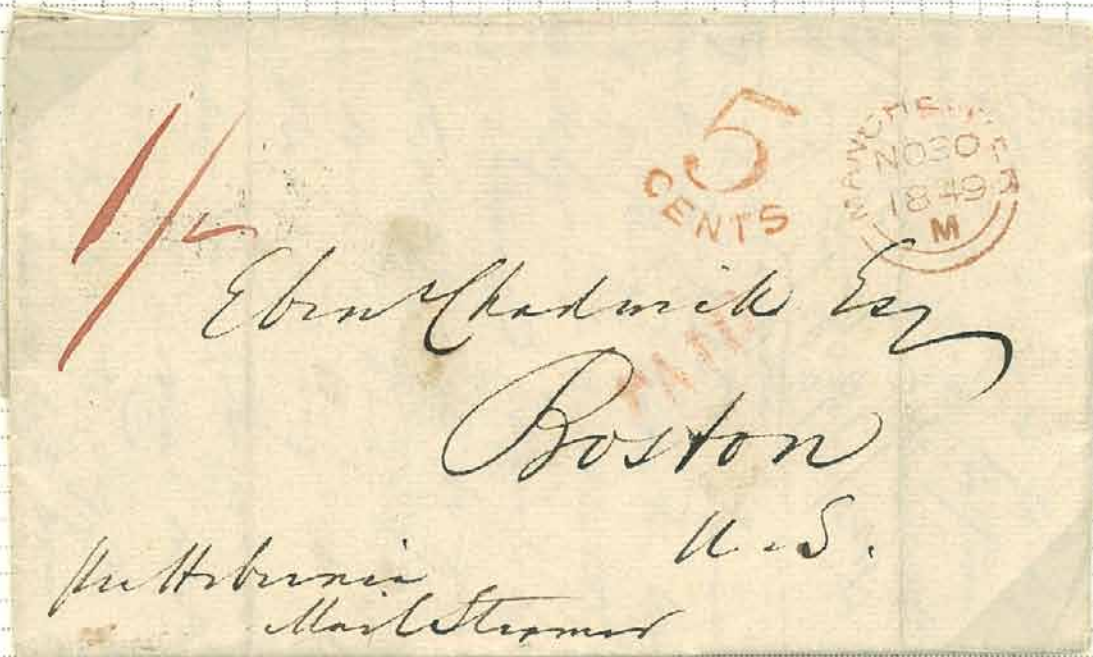 1/-
5
CENTS
MANCHESTER
NO30
1849
M
Ebenr Chadwick Esq
PAID
Boston
U.S.
per Hibernia
Mail Steamer